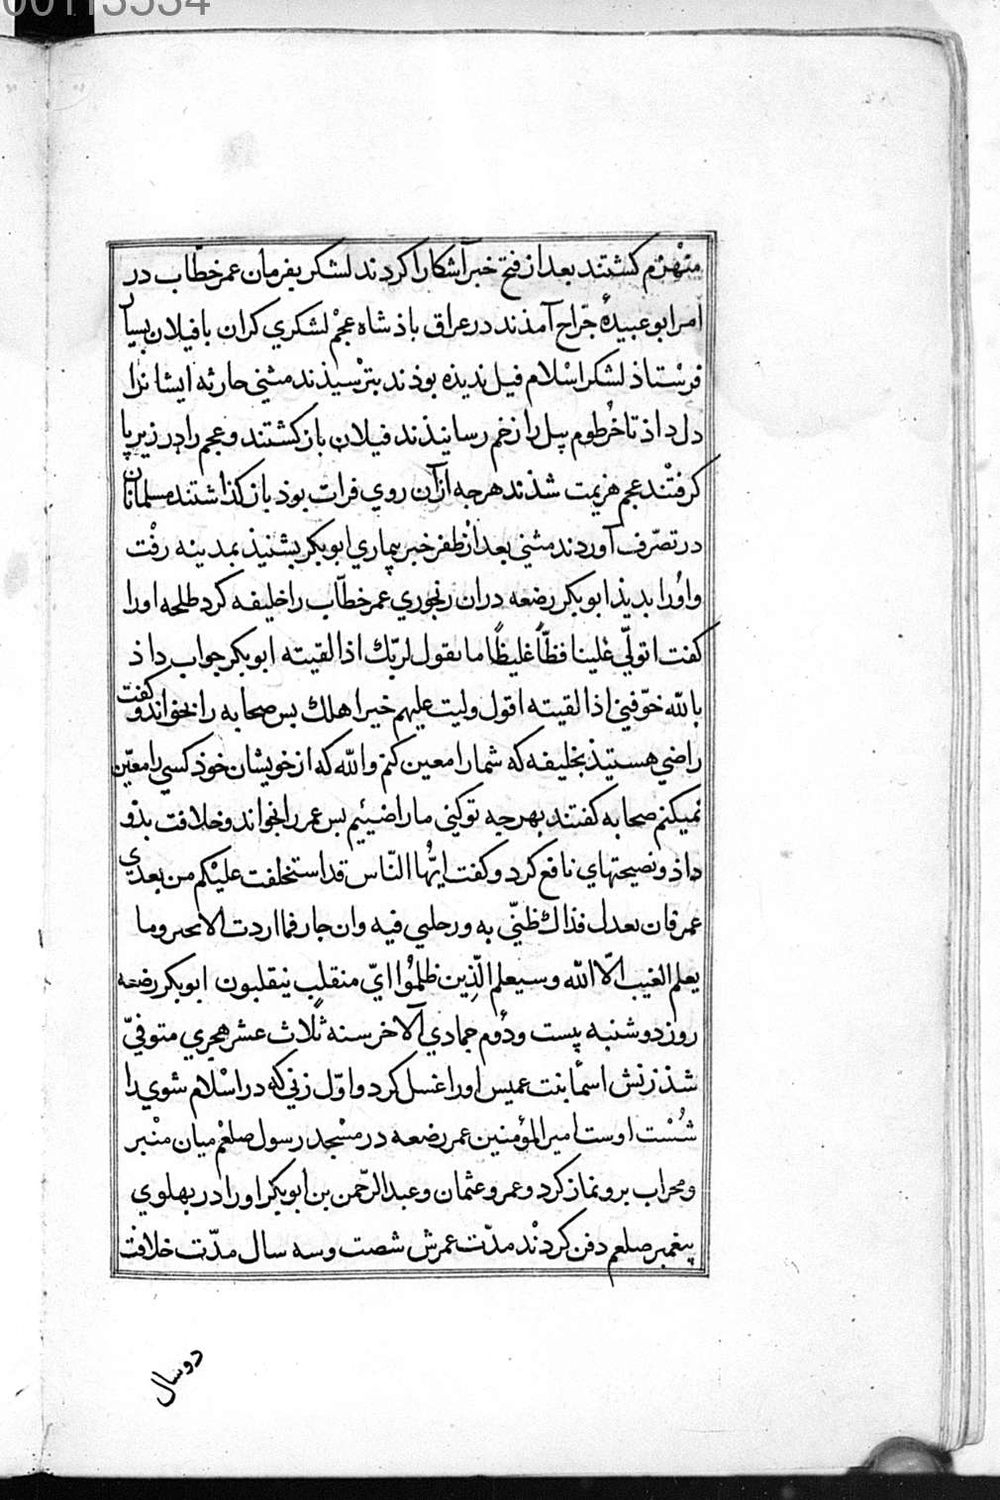 00113534
منهزم كشتند بعد از فتح خبر آشكارا كردند لشكر بفرمان عمر خطاب در
امر ابو عبيدهٔ جرّاح آمذند در عراق باذشاه عجم لشكري كران با فيلان بسيار
فرستاذ لشكر اسلام فيل نديذه بوذند بترسيذند مثني حارثه ايشانرا
دل داذ تا خرطوم پيل را زخم رسانيذند فيلان باز كشتند و عجم را در زير پا
كرفتند عجم هزيمت شذند هرجه از آن روي فرات بوذ باز كذاشتند مسلمانان
در تصرّف آوردند مثني بعد از ظفر خبر بيماري ابوبكر بشنيذ بمدينه رفت
و اورا بديذ ابوبكر رضعه دران رنجوري عمر خطّاب را خليفه كرد طلحه اورا
كفت اتولّي علينا فظّاً غليظاً ما نقول لربّك اذا لقيته ابوبكر جواب داذ
بالله خوّفيني اذا لقيته اقول وليت عليهم خير اهلك بس صحابه را بخواند و كفت
راضي هستيذ بخليفه كه شما را معين كنم والله كه از خويشان خوذ كسي را معيّن
نميكنم صحابه كفتند بهرجه تو كني ما راضييم بس عمر را بخواند و خلافت بذو
داذ و نصيحتهاي نافع كرد و كفت ايّها النّاس قد استخلفت عليكم من بعدي
عمر فان يعدل فذاك ظنّي به ورجايي فيه وان جار فما اردت الا الخير وما
يعلم الغيب الّا الله وسيعلم الّذين ظلموا ايّ منقلب ينقلبون ابوبكر رضعه
روز دوشنبه بيست و دوم جمادي الآخر سنه ثلاث عشر هجري متوفيّ
شذ زنش اسما بنت عميس اورا غسل كرد و اوّل زني كه در اسلام شوي را
شست اوست امير المؤمنين عمر رضعه در مسجد رسول صلعم ميان منبر
و محراب برو نماز كرد و عمر و عثمان و عبد الرّحمن بن ابوبكر اورا در بهلوي
پيغمبر صلعم دفن كردند مدّت عمرش شصت و سه سال مدّت خلافت
دو سال